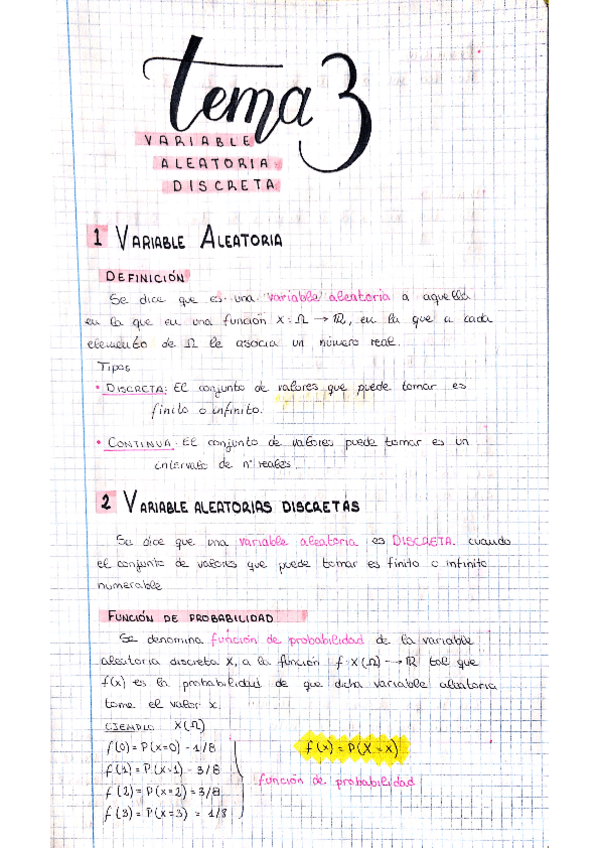 tema 3
VARIABLE
ALEATORIA
DISCRETA
1 VARIABLE ALEATORIA
DEFINICIÓN
Se dice que es una variable aleatoria a aquella
en la que en una función X: Ω → ℝ, en la que a cada
elemento de Ω le asocia un número real.
Tipos
• DISCRETA: El conjunto de valores que puede tomar es
finito o infinito.
• CONTINUA: El conjunto de valores puede tomar es un
intervalo de nº reales.
2 VARIABLE ALEATORIAS DISCRETAS
Se dice que una variable aleatoria es DISCRETA cuando
el conjunto de valores que puede tomar es finito o infinito
numerable
FUNCIÓN DE PROBABILIDAD
Se denomina función de probabilidad de la variable
aleatoria discreta X, a la función f: X(Ω) → ℝ tal que
f(x) es la probabilidad de que dicha variable aleatoria
tome el valor x.
EJEMPLO: X(Ω)
f(0) = P(X=0) = 1/8
f(x) = P(X=x)
f(1) = P(X=1) = 3/8
función de probabilidad
f(2) = P(X=2) = 3/8
f(3) = P(X=3) = 1/8